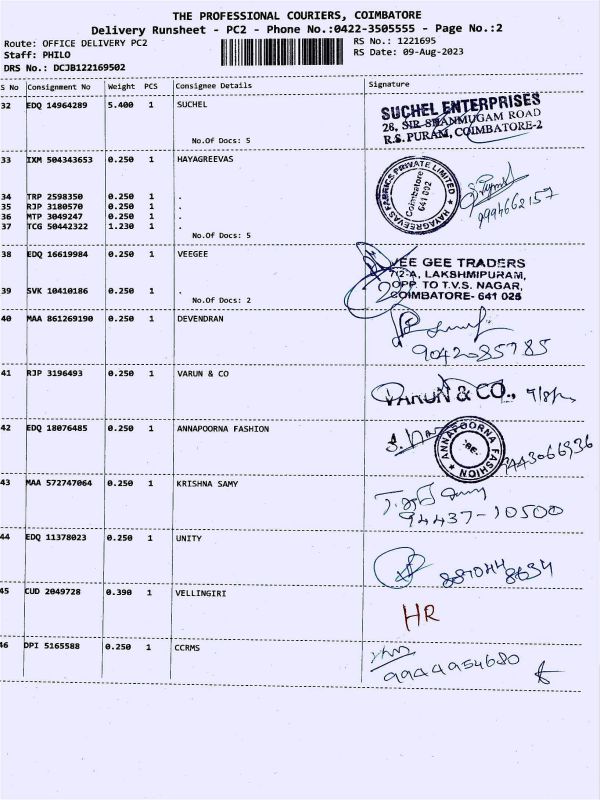 THE PROFESSIONAL COURIERS, COIMBATORE
Delivery Runsheet - PC2 - Phone No.:0422-3505555 - Page No.:2
Route: OFFICE DELIVERY PC2
RS No.: 1221695
Staff: PHILO
RS Date: 09-Aug-2023
DRS No.: DCJB122169502
S No Consignment No Weight PCS Consignee Details Signature
32 EDQ 14964289 5.400 1 SUCHEL
No.Of Docs: 5
SUCHEL ENTERPRISES
28, SIR SHANMUGAM ROAD
R.S. PURAM, COIMBATORE-2
33 IXM 504343653 0.250 1 HAYAGREEVAS
34 TRP 2598350 0.250 1 .
35 RJP 3180570 0.250 1 .
36 MTP 3049247 0.250 1 .
37 TCG 50442322 1.230 1 .
No.Of Docs: 5
HAYAGREEVAS FABRICS PRIVATE LIMITED
Coimbatore
641 002
9994662157
38 EDQ 16619984 0.250 1 VEEGEE
39 SVK 10410186 0.250 1 .
No.Of Docs: 2
VEE GEE TRADERS
7/2-A, LAKSHMIPURAM,
OPP. TO T.V.S. NAGAR,
COIMBATORE- 641 025
40 MAA 861269190 0.250 1 DEVENDRAN
9042085785
41 RJP 3196493 0.250 1 VARUN & CO
VARUN & CO.,
42 EDQ 18076485 0.250 1 ANNAPOORNA FASHION
ANNAPOORNA FASHION
9443066936
43 MAA 572747064 0.250 1 KRISHNA SAMY
94437-10500
44 EDQ 11378023 0.250 1 UNITY
45 CUD 2049728 0.390 1 VELLINGIRI
HR
46 DPI 5165588 0.250 1 CCRMS
9944954680